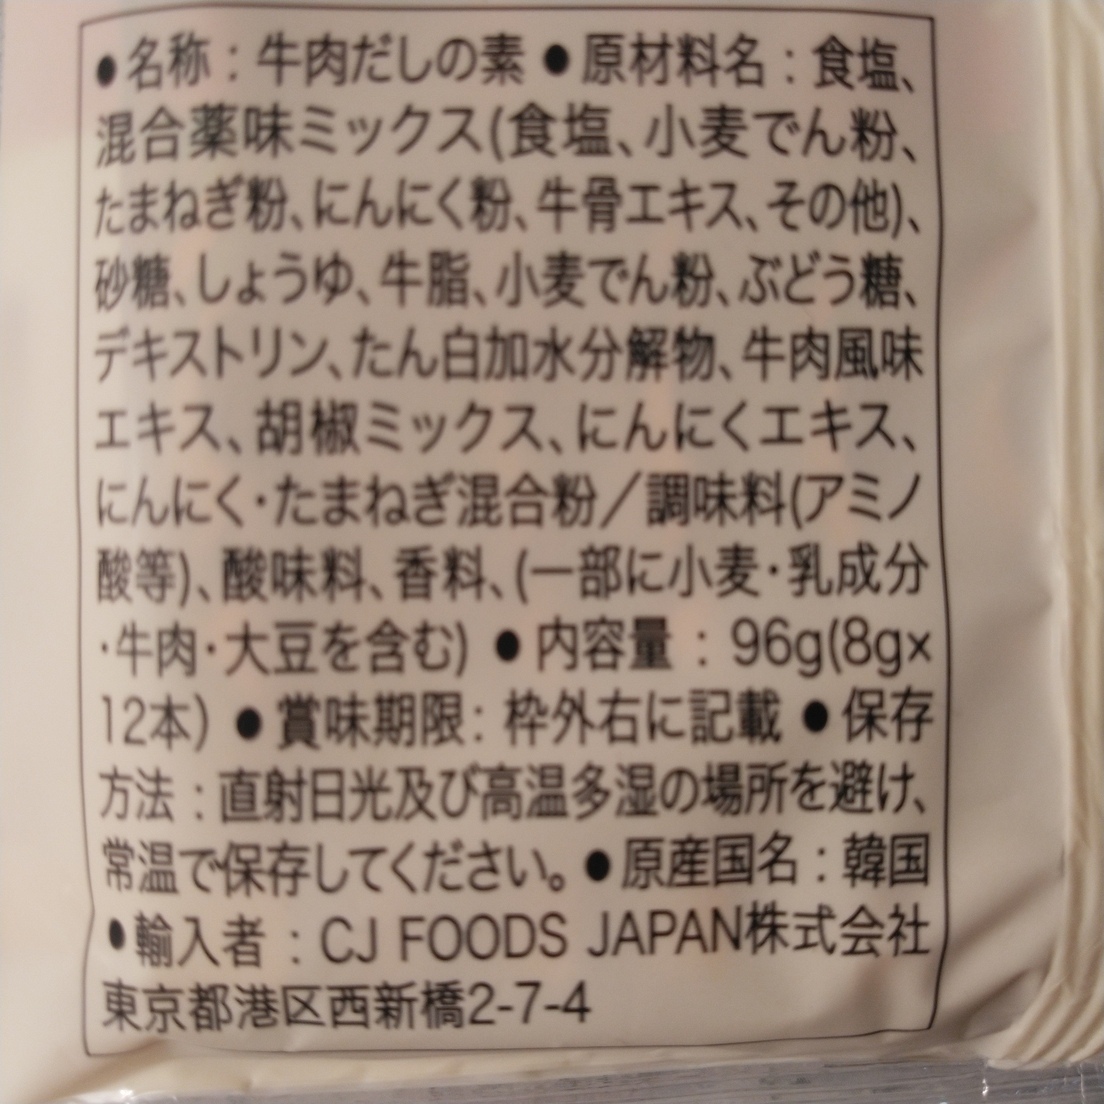 ●名称：牛肉だしの素 ●原材料名：食塩、
混合薬味ミックス(食塩、小麦でん粉、
たまねぎ粉、にんにく粉、牛骨エキス、その他)、
砂糖、しょうゆ、牛脂、小麦でん粉、ぶどう糖、
デキストリン、たん白加水分解物、牛肉風味
エキス、胡椒ミックス、にんにくエキス、
にんにく・たまねぎ混合粉／調味料(アミノ
酸等)、酸味料、香料、(一部に小麦・乳成分
・牛肉・大豆を含む) ●内容量：96g(8g×
12本) ●賞味期限：枠外右に記載 ●保存
方法：直射日光及び高温多湿の場所を避け、
常温で保存してください。●原産国名：韓国
●輸入者：CJ FOODS JAPAN株式会社
東京都港区西新橋2-7-4